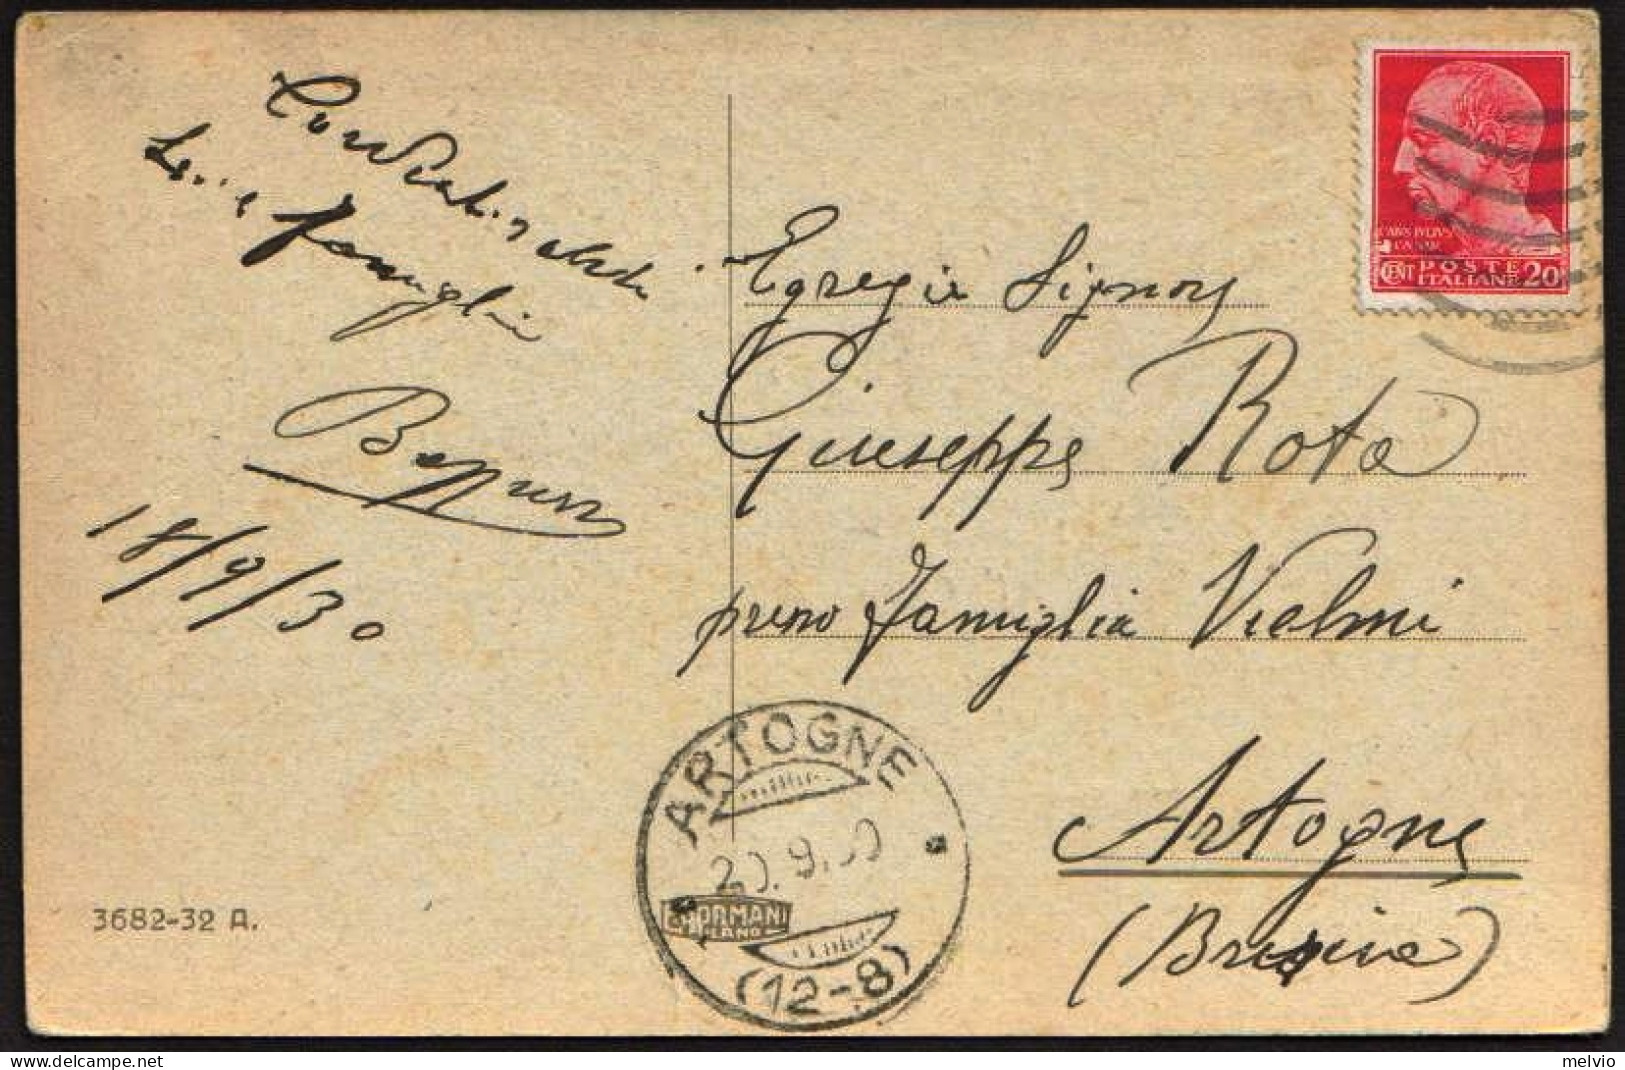 Cordialità
famiglia
18/9/30
Egregio Signor
Giuseppe Rota
presso famiglia Vielmi
Artogne
(Brescia)
CAIVS IVLIVS
CAESAR
CENT POSTE
ITALIANE 20
ARTOGNE
20.9.30
MILANO
(12-8)
3682-32 A.
melvio